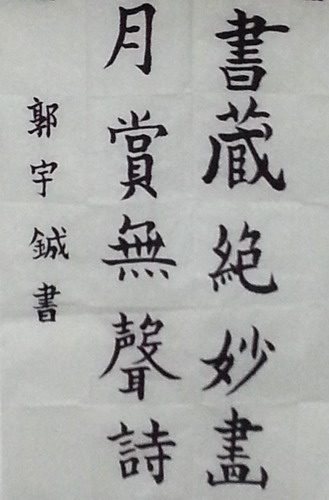 書蔵絶妙畫
月賞無聲詩
郭宇鋮書